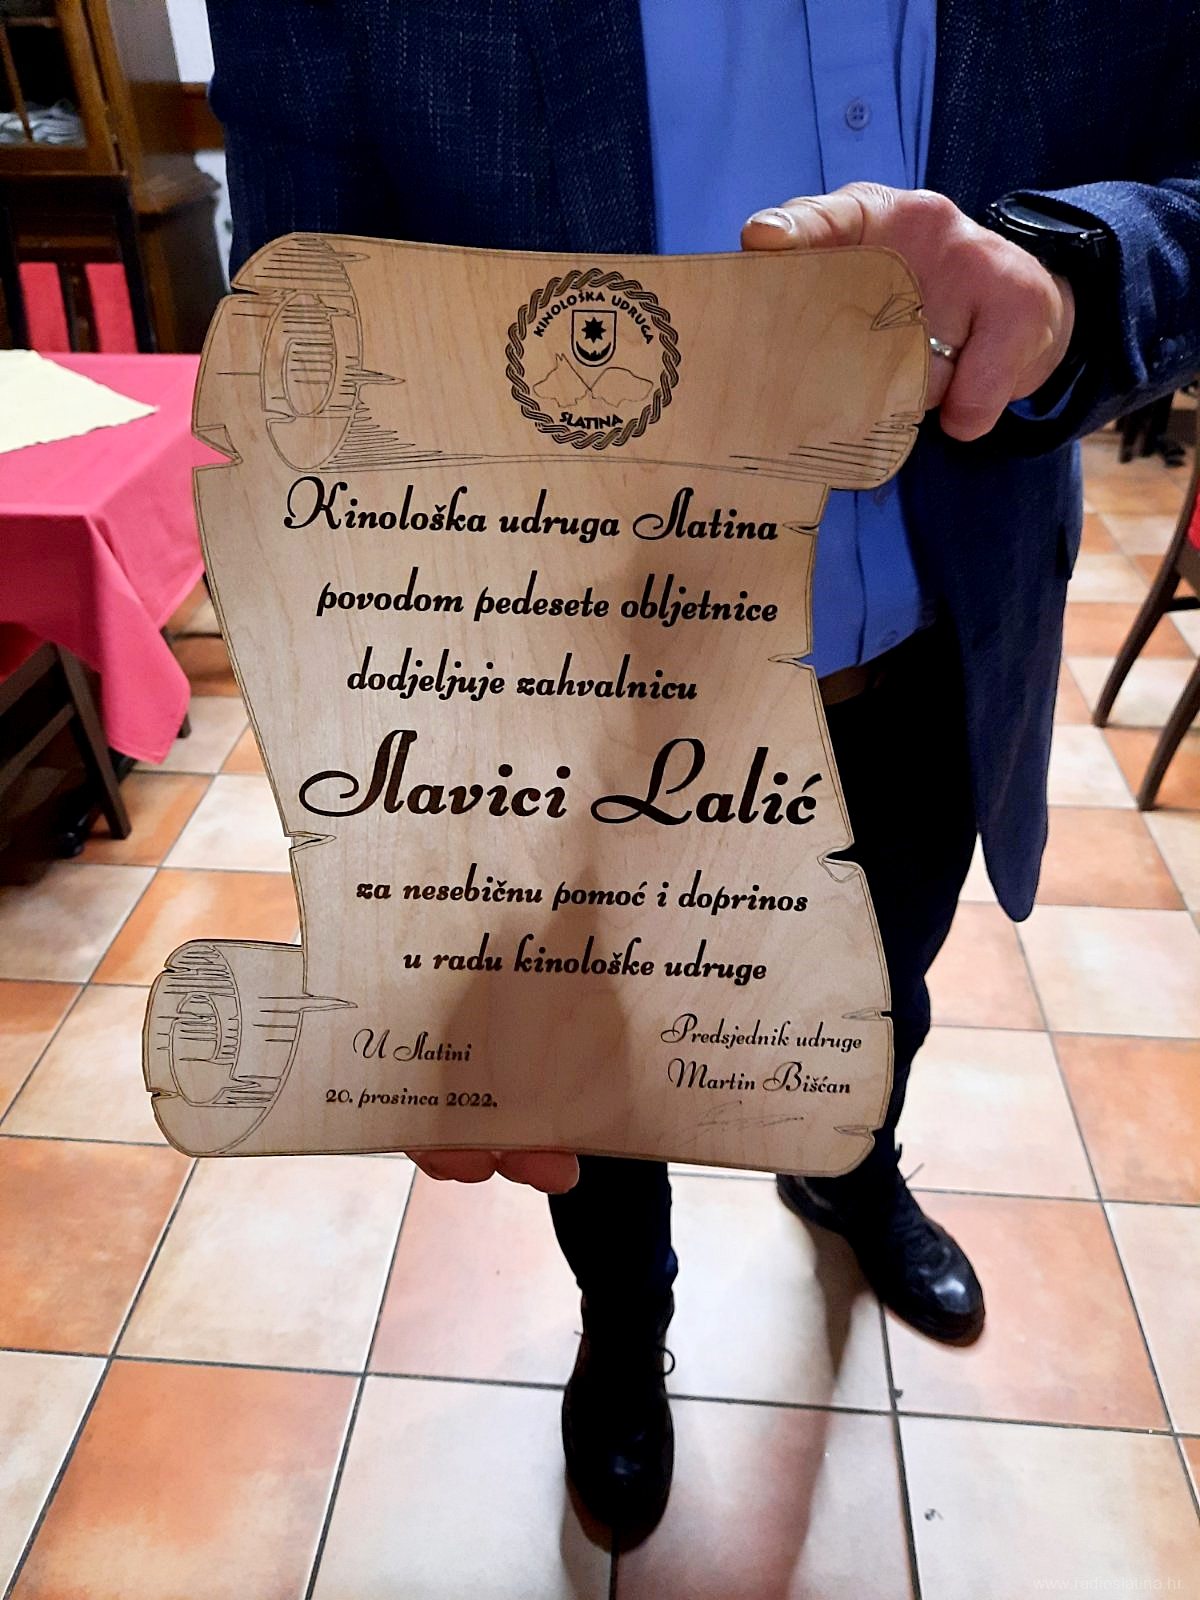 KINOLOŠKA UDRUGA
SLATINA
Kinološka udruga Slatina
povodom pedesete obljetnice
dodjeljuje zahvalnicu
Slavici Lalić
za nesebičnu pomoć i doprinos
u radu kinološke udruge
U Slatini
20. prosinca 2022.
Predsjednik udruge
Martin Bišćan
www.radioslatina.hr